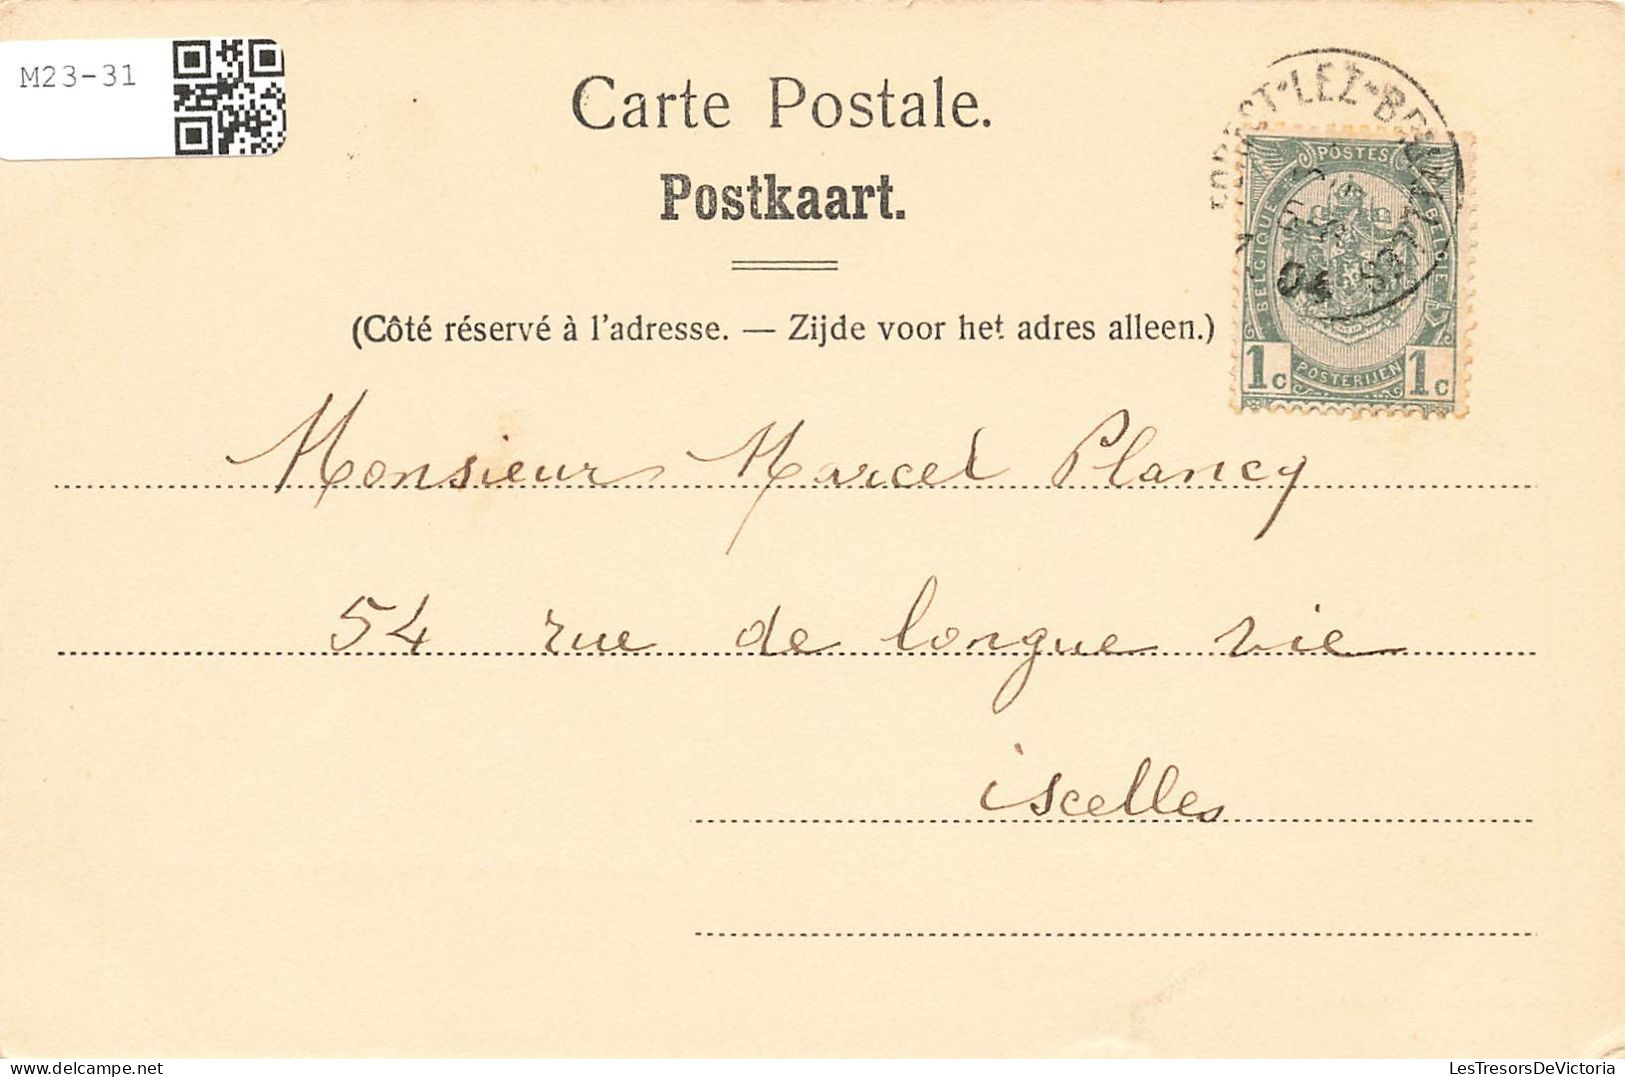 M23-31
Carte Postale.
Postkaart.
(Côté réservé à l'adresse. — Zijde voor het adres alleen.)
FOREST-LEZ-BRUXELLES
04
POSTES
BELGIQUE
BELGIE
POSTERIJEN
1c 1c
Monsieur Marcel Plancy
54 rue de longue vie
iscelles
LesTresorsDeVictoria